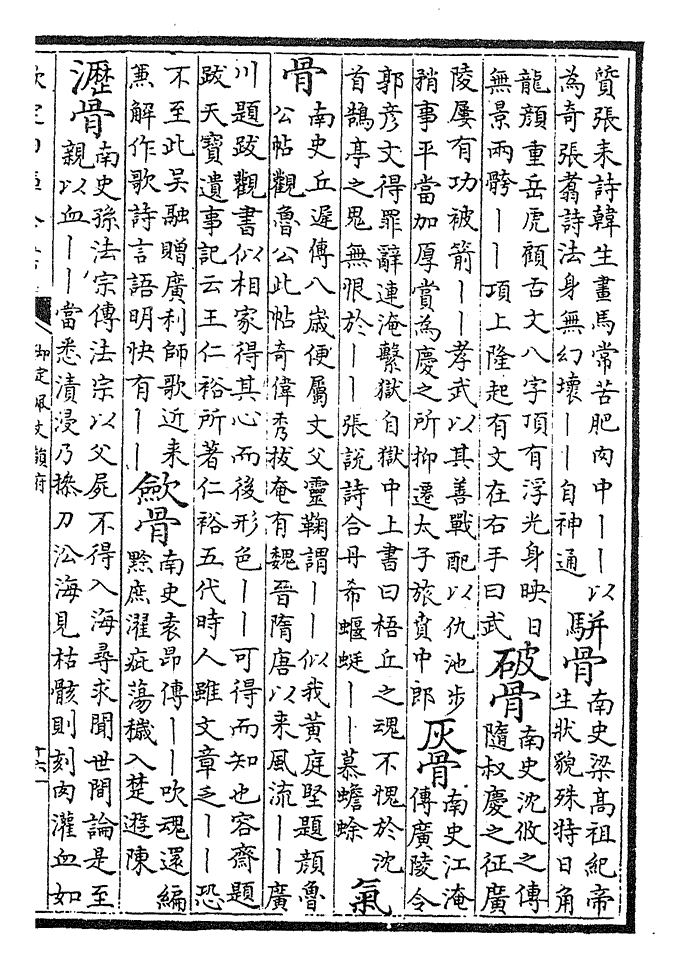 質張耒詩韓生畫馬常苦肥肉中丨丨以
為奇張翥詩法身無幻壞丨丨自神通
駢骨
南史梁高祖紀帝
生狀貌殊特日角
龍顔重岳虎顧舌文八字頂有浮光身映日
無景兩骻丨丨項上隆起有文在右手曰武
破骨
南史沈攸之傳
隨叔慶之征廣
陵屢有功被箭丨丨孝武以其善戰配以仇池步
矟事平當加厚賞為慶之所抑遷太子旅賁中郎
灰骨
南史江淹
傳廣陵令
郭彦文得罪辭連淹繫獄自獄中上書曰梧丘之魂不愧於沈
首鵠亭之鬼無恨於丨丨張說詩合丹希蝘蜓丨丨慕蟾蜍
氣
骨
南史丘遲傳八嵗便屬文父靈鞠謂丨丨似我黄庭堅題顔魯
公帖觀魯公此帖奇偉秀拔奄有魏晉隋唐以来風流丨丨廣
川題跋觀書似相家得其心而後形色丨丨可得而知也容齋題
跋天寶遺事記云王仁裕所著仁裕五代時人雖文章乏丨丨恐
不至此吴融贈廣利師歌近来
兼解作歌詩言語明快有丨丨
歛骨
南史袁昂傳丨丨吹魂還編
黔庶濯疵蕩穢入楚遊陳
瀝骨
南史孫法宗傳法宗以父屍不得入海尋求聞世間論是至
親以血丨丨當悉漬浸乃操刀㳂海見枯骸則刻肉灌血如
御定佩文韻府
十六